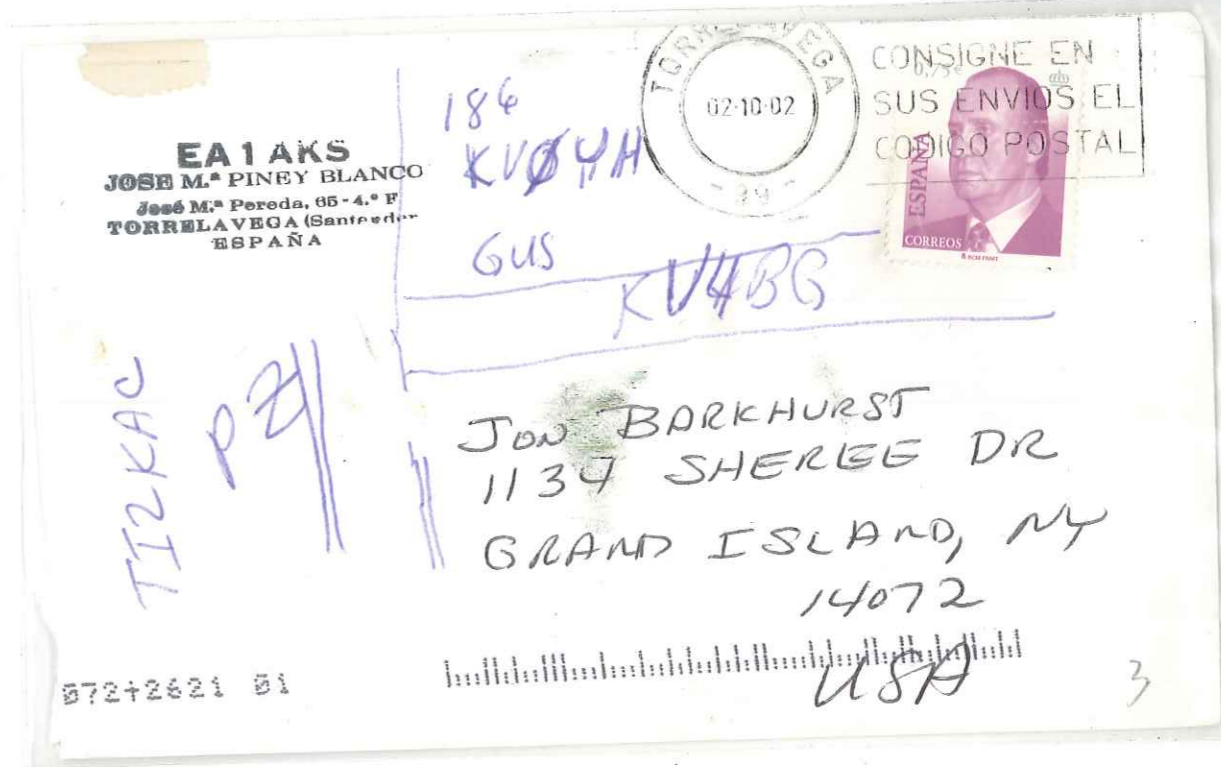 EA1AKS
JOSE M.ª PINEY BLANCO
José M.ª Pereda, 65 - 4.º F
TORRELAVEGA (Santander
ESPAÑA
186
KVØ
GUS
KV4BG
TORRELAVEGA
02-10-02
39
CONSIGNE EN
SUS ENVIOS EL
CODIGO POSTAL
0,75€
ESPAÑA
CORREOS
TI2KAC
JON BARKHURST
1134 SHEREE DR
GRAND ISLAND, NY
14072
USA
072+2621 01
3